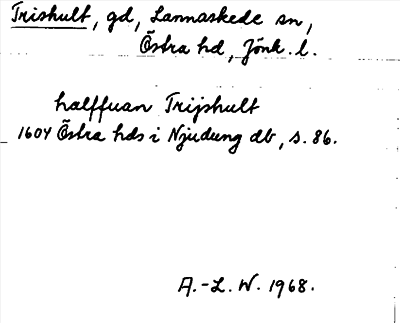 Trishult, gd, Lannaskede sn,
Östra hd, Jönk. l.
halffuan Trijshult
1604 Östra hds i Njudung db, s. 86.
A.-L. W. 1968.